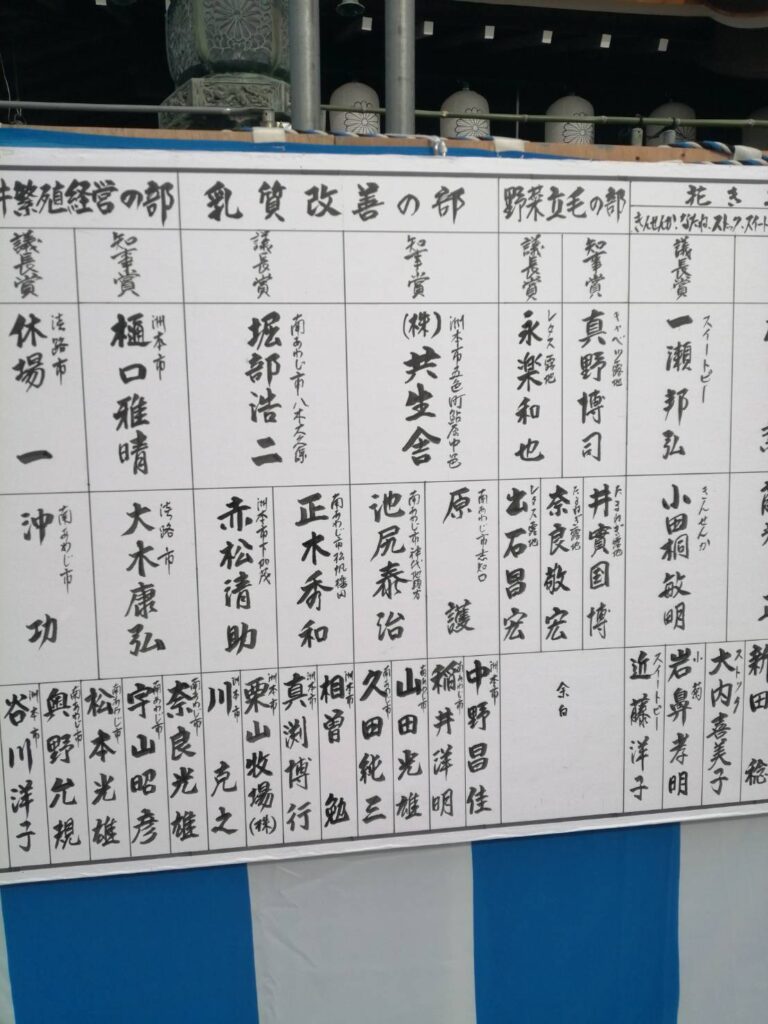 繁殖経営の部
乳質改善の部
野菜立毛の部
花き
きんせんか、なたね、ストック、スイート
議長賞
知事賞
議長賞
知事賞
議長賞
知事賞
議長賞
淡路市
休場 一
洲本市
樋口雅晴
南あわじ市八木
堀部浩二
洲本市五色町鮎原中邑
(株)共生舎
レタス露地
永楽和也
キャベツ露地
真野博司
スイートピー
一瀬邦弘
南あわじ市
沖 功
淡路市
大木康弘
洲本市下加茂
赤松清助
南あわじ市松帆
正木秀和
南あわじ市神代地頭方
池尻泰治
南あわじ市志知口
原 護
レタス露地
出石昌宏
たまねぎ露地
奈良敬宏
たまねぎ露地
井實国博
きんせんか
小田桐敏明
洲本市
谷川洋子
南あわじ市
奥野允規
南あわじ市
松本光雄
南あわじ市
宇山昭彦
南あわじ市
奈良光雄
洲本市
川 克之
洲本市
栗山牧場(株)
洲本市
真渕博行
洲本市
相曽 勉
南あわじ市
久田純三
南あわじ市
山田光雄
南あわじ市
稲井洋明
洲本市
中野昌佳
余白
スイートピー
近藤洋子
小菊
岩鼻孝明
ストック
大内喜美子
新田 稔